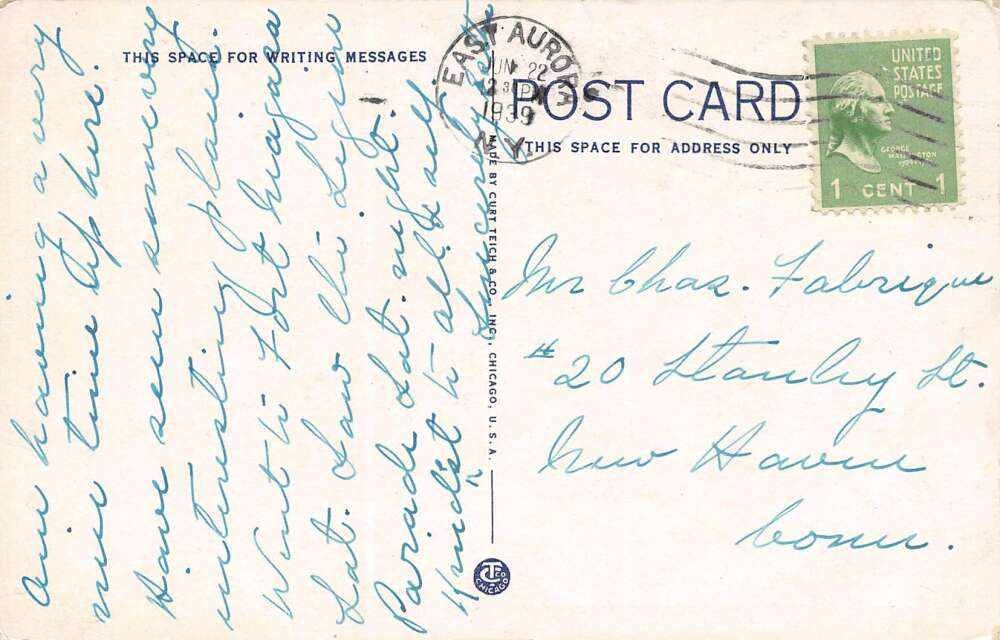 THIS SPACE FOR WRITING MESSAGES
Am having a very
nice time up here.
Have seen some very
interesting places.
Went to Fort Niagara
Sat. Saw the Legion
Parade Sat. night.
Kind'st to all & self
Sincerely,
EAST AURORA
JUN 22
2 30 PM
1939
N.Y.
POST CARD
THIS SPACE FOR ADDRESS ONLY
UNITED
STATES
POSTAGE
GEORGE
WASHINGTON
1 CENT 1
Mr Chas. Fabrique
#20 Stanley St.
New Haven
Conn.
MADE BY CURT TEICH & CO., INC., CHICAGO, U.S.A.
CT CO
CHICAGO